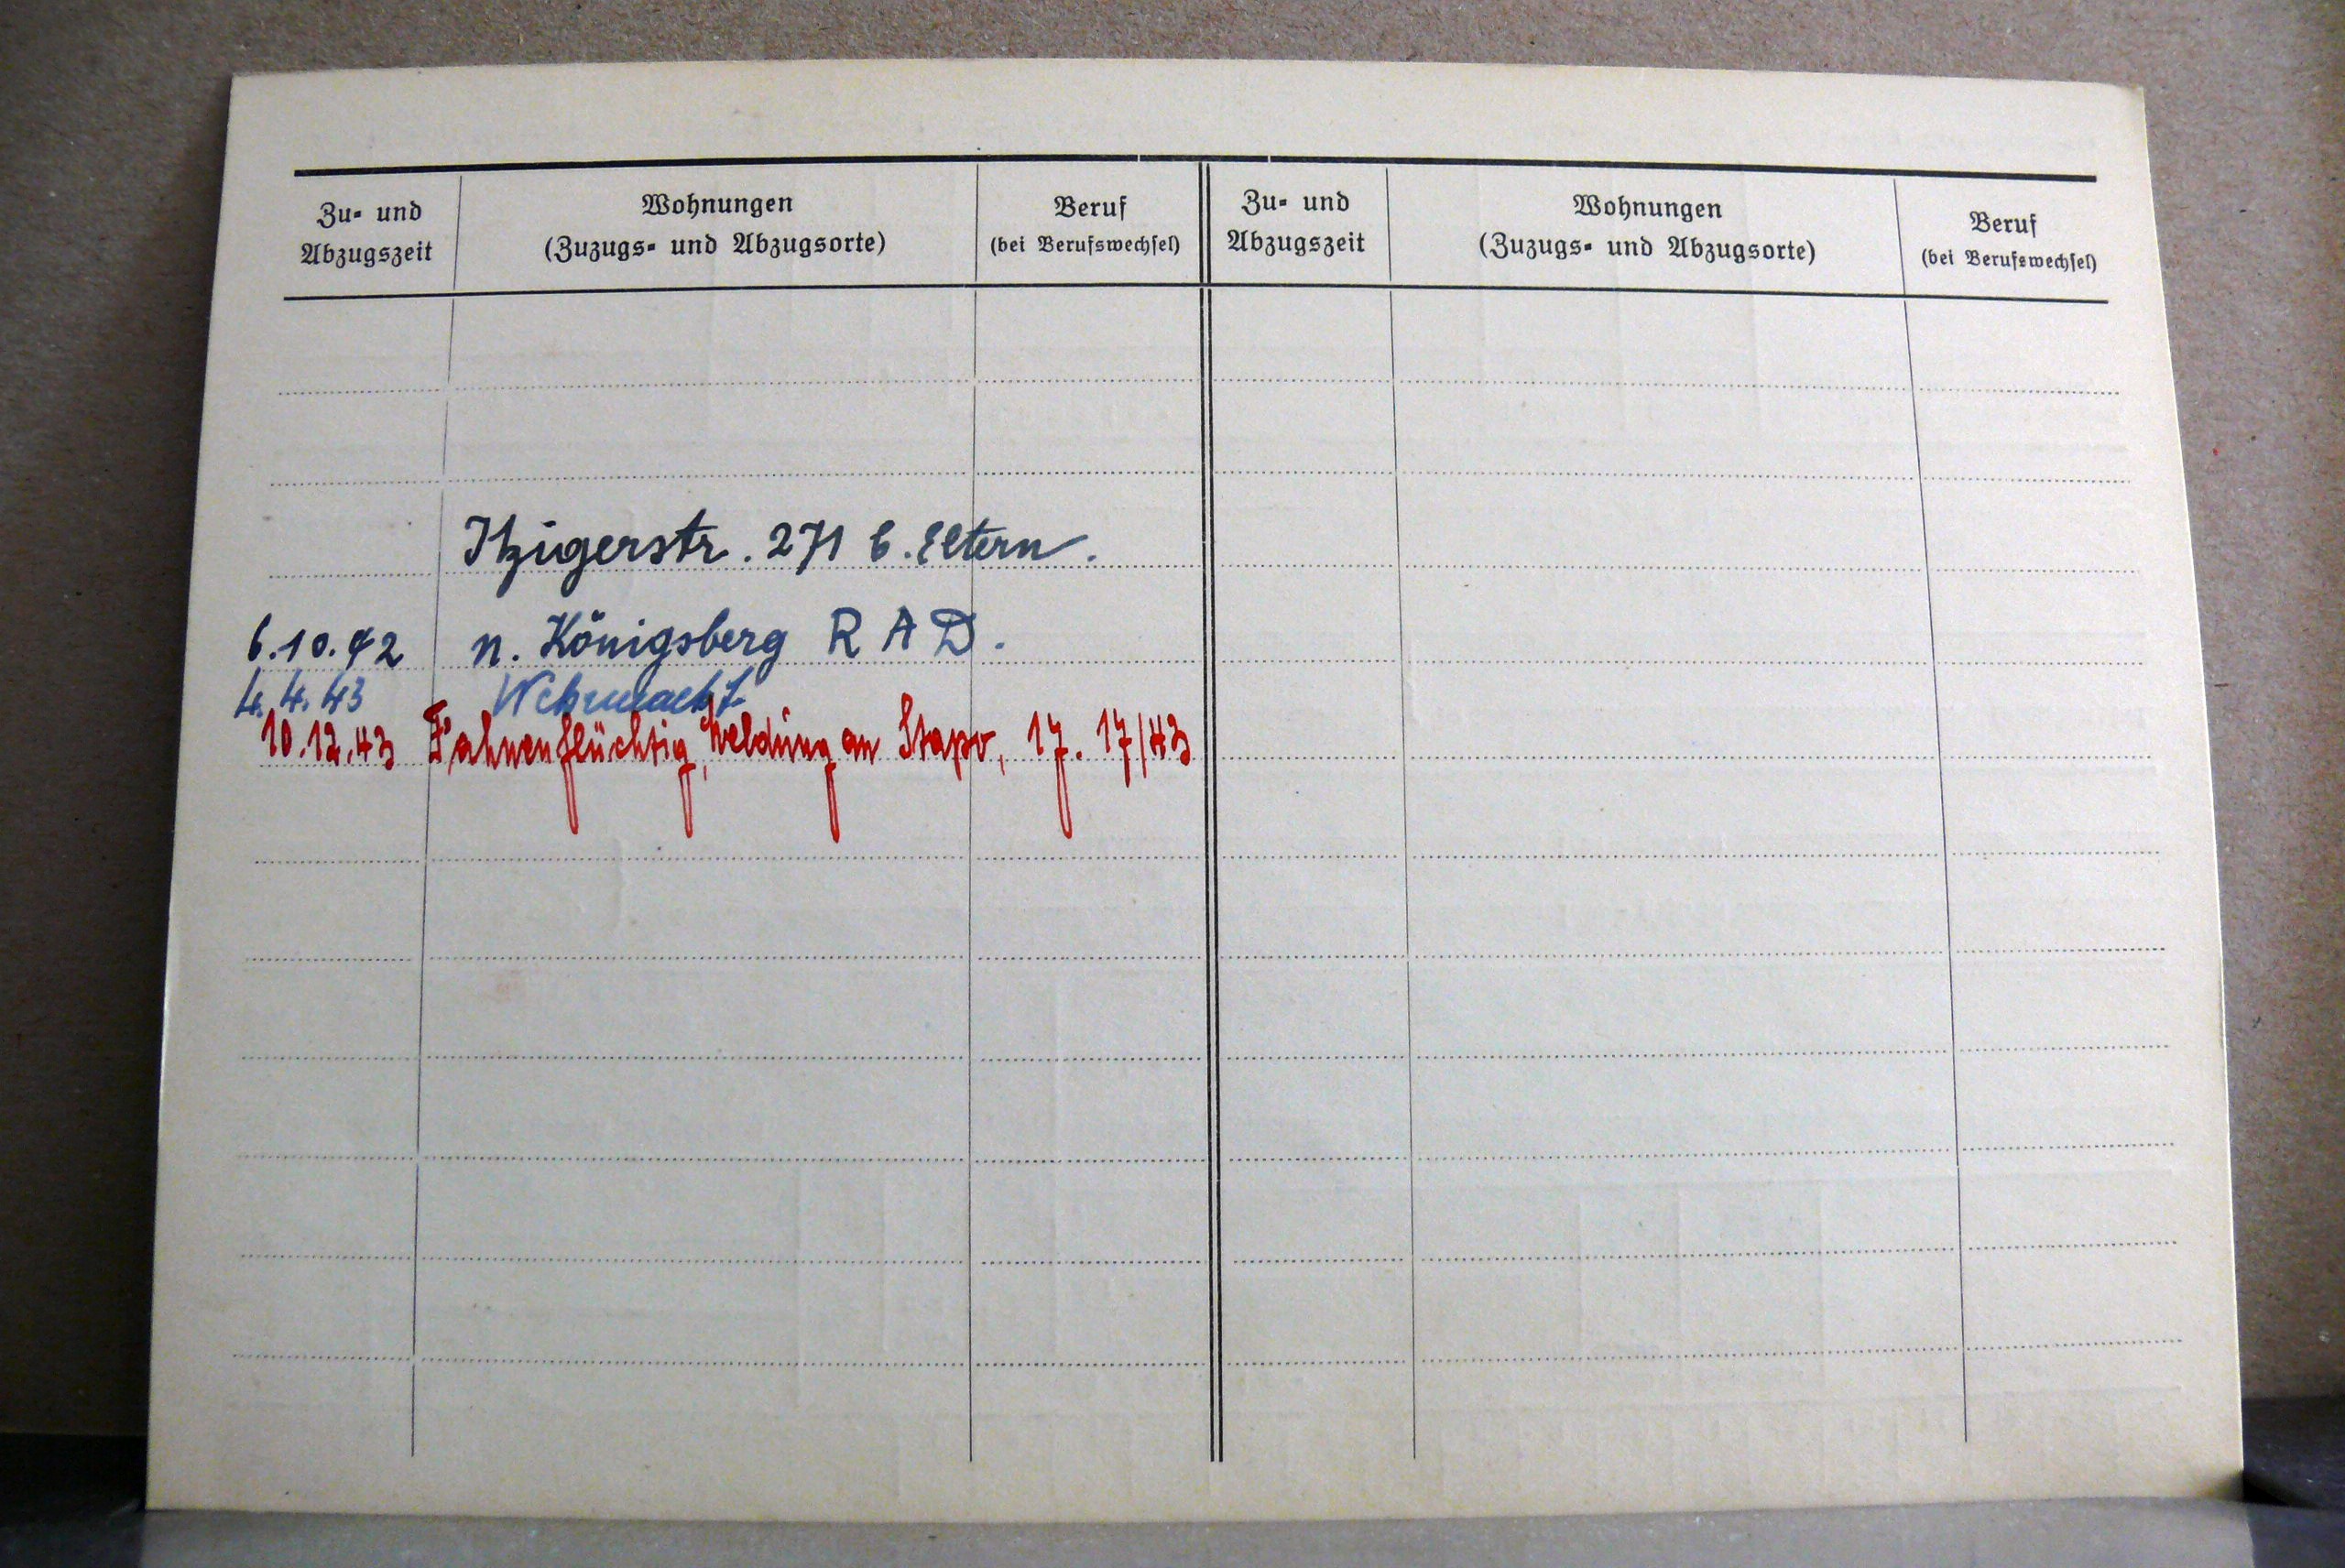 Zu- und Abzugszeit
Wohnungen
(Zuzugs- und Abzugsorte)
Beruf
(bei Berufswechsel)
Zu- und Abzugszeit
Wohnungen
(Zuzugs- und Abzugsorte)
Beruf
(bei Berufswechsel)
Itzigerstr. 271 b. Eltern.
6.10.42 n. Königsberg R A D.
4.4.43 Wehrmacht
10.12.43 Fahnenflüchtig, Meldung an Stapo, 17/43